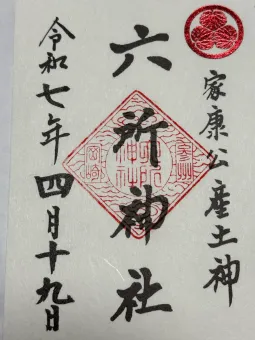 家康公産土神
六所神社
令和七年四月十九日
参州
岡崎